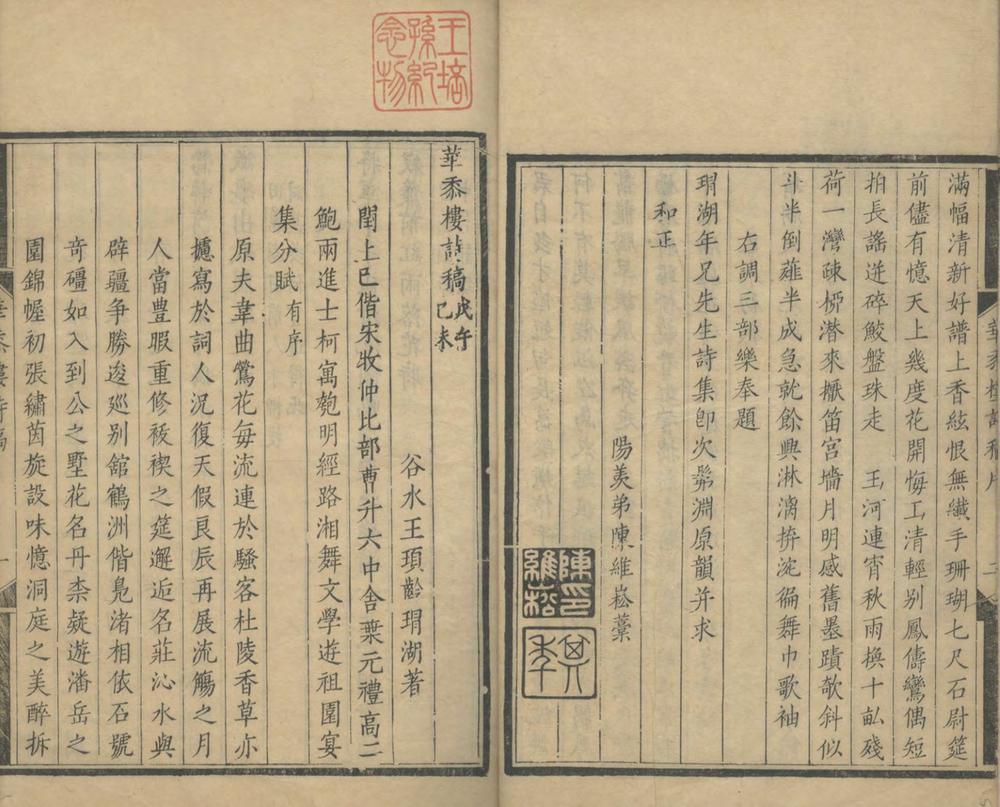 滿幅清新好譜上香絃恨無纖手珊瑚七尺石尉筵
前儘有憶天上幾度花開悔工清輕別鳳儔鸞偶短
拍長謠迸碎鮫盤珠走　玉河連宵秋雨換十畝殘
荷一灣疎栁潜來擫笛宮墻月明感舊墨蹟欹斜似
斗半倒薤半成急就餘興淋漓拚沱徧舞巾歌袖
右調三部樂奉題
瑁湖年兄先生詩集卽次㔢淵原韻并求
和正
陽羡弟陳維崧藁
陳印維崧
其年
華黍樓詩稿
王培孫紀念物
華黍樓詩稿戊午己未
谷水王頊齡瑁湖著
閏上巳偕宋牧仲比部曹升六中舍葉元禮高二
鮑兩進士柯寓匏明經路湘舞文學遊祖園宴
集分賦有序
原夫韋曲鶯花每流連於騷客杜陵香草亦
攄寫於詞人況復天假良辰再展流觴之月
人當豊暇重修祓禊之筵邂逅名莊沁水與
辟疆爭勝逡廵别舘鶴洲偕鳧渚相依石號
奇礓如入到公之墅花名丹柰疑遊潘岳之
園錦幄初張繡茵旋設味憶洞庭之美醉拆
華黍樓詩稿
一